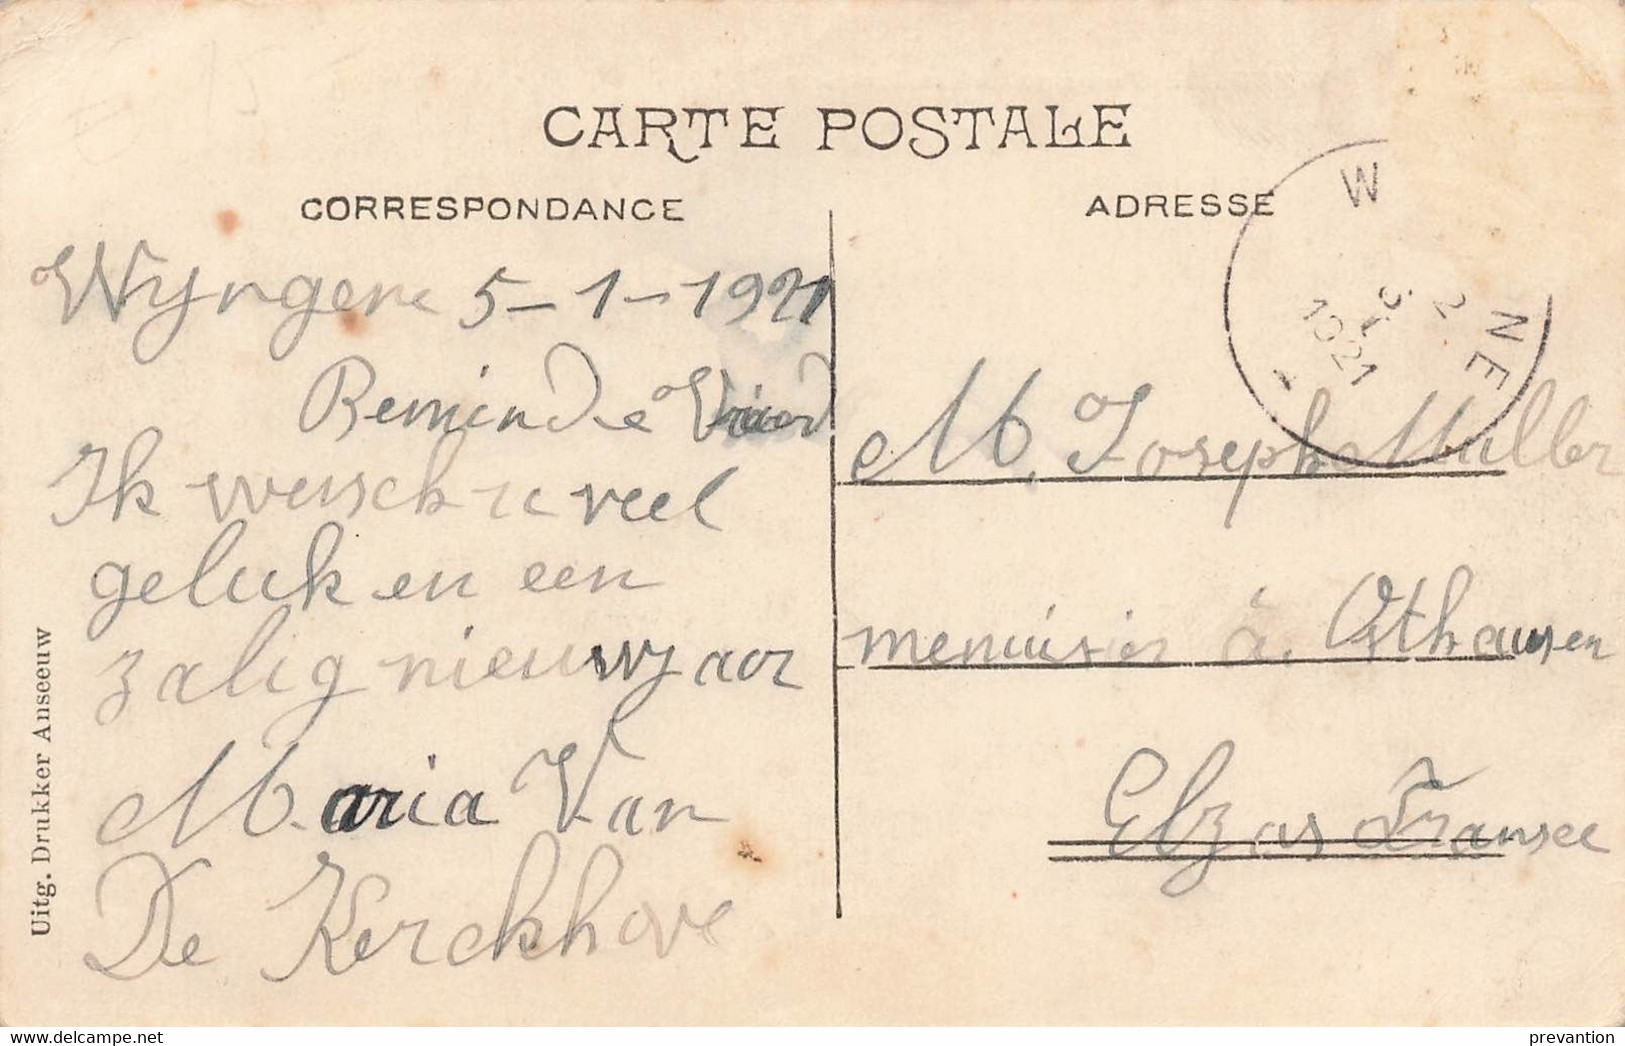 CARTE POSTALE
CORRESPONDANCE
ADRESSE
Wyngene 5-1-1921
Beminde Vriend
Ik wensch u veel
geluk en een
zalig nieuwjaar
Maria Van
De Kerckhove
M. Joseph Muller
menuisier à Othausen
Elzas Fransce
W NE
2
5 I
1921
Uitg. Drukker Anseeuw
https://www.delcampe.net
prevantion